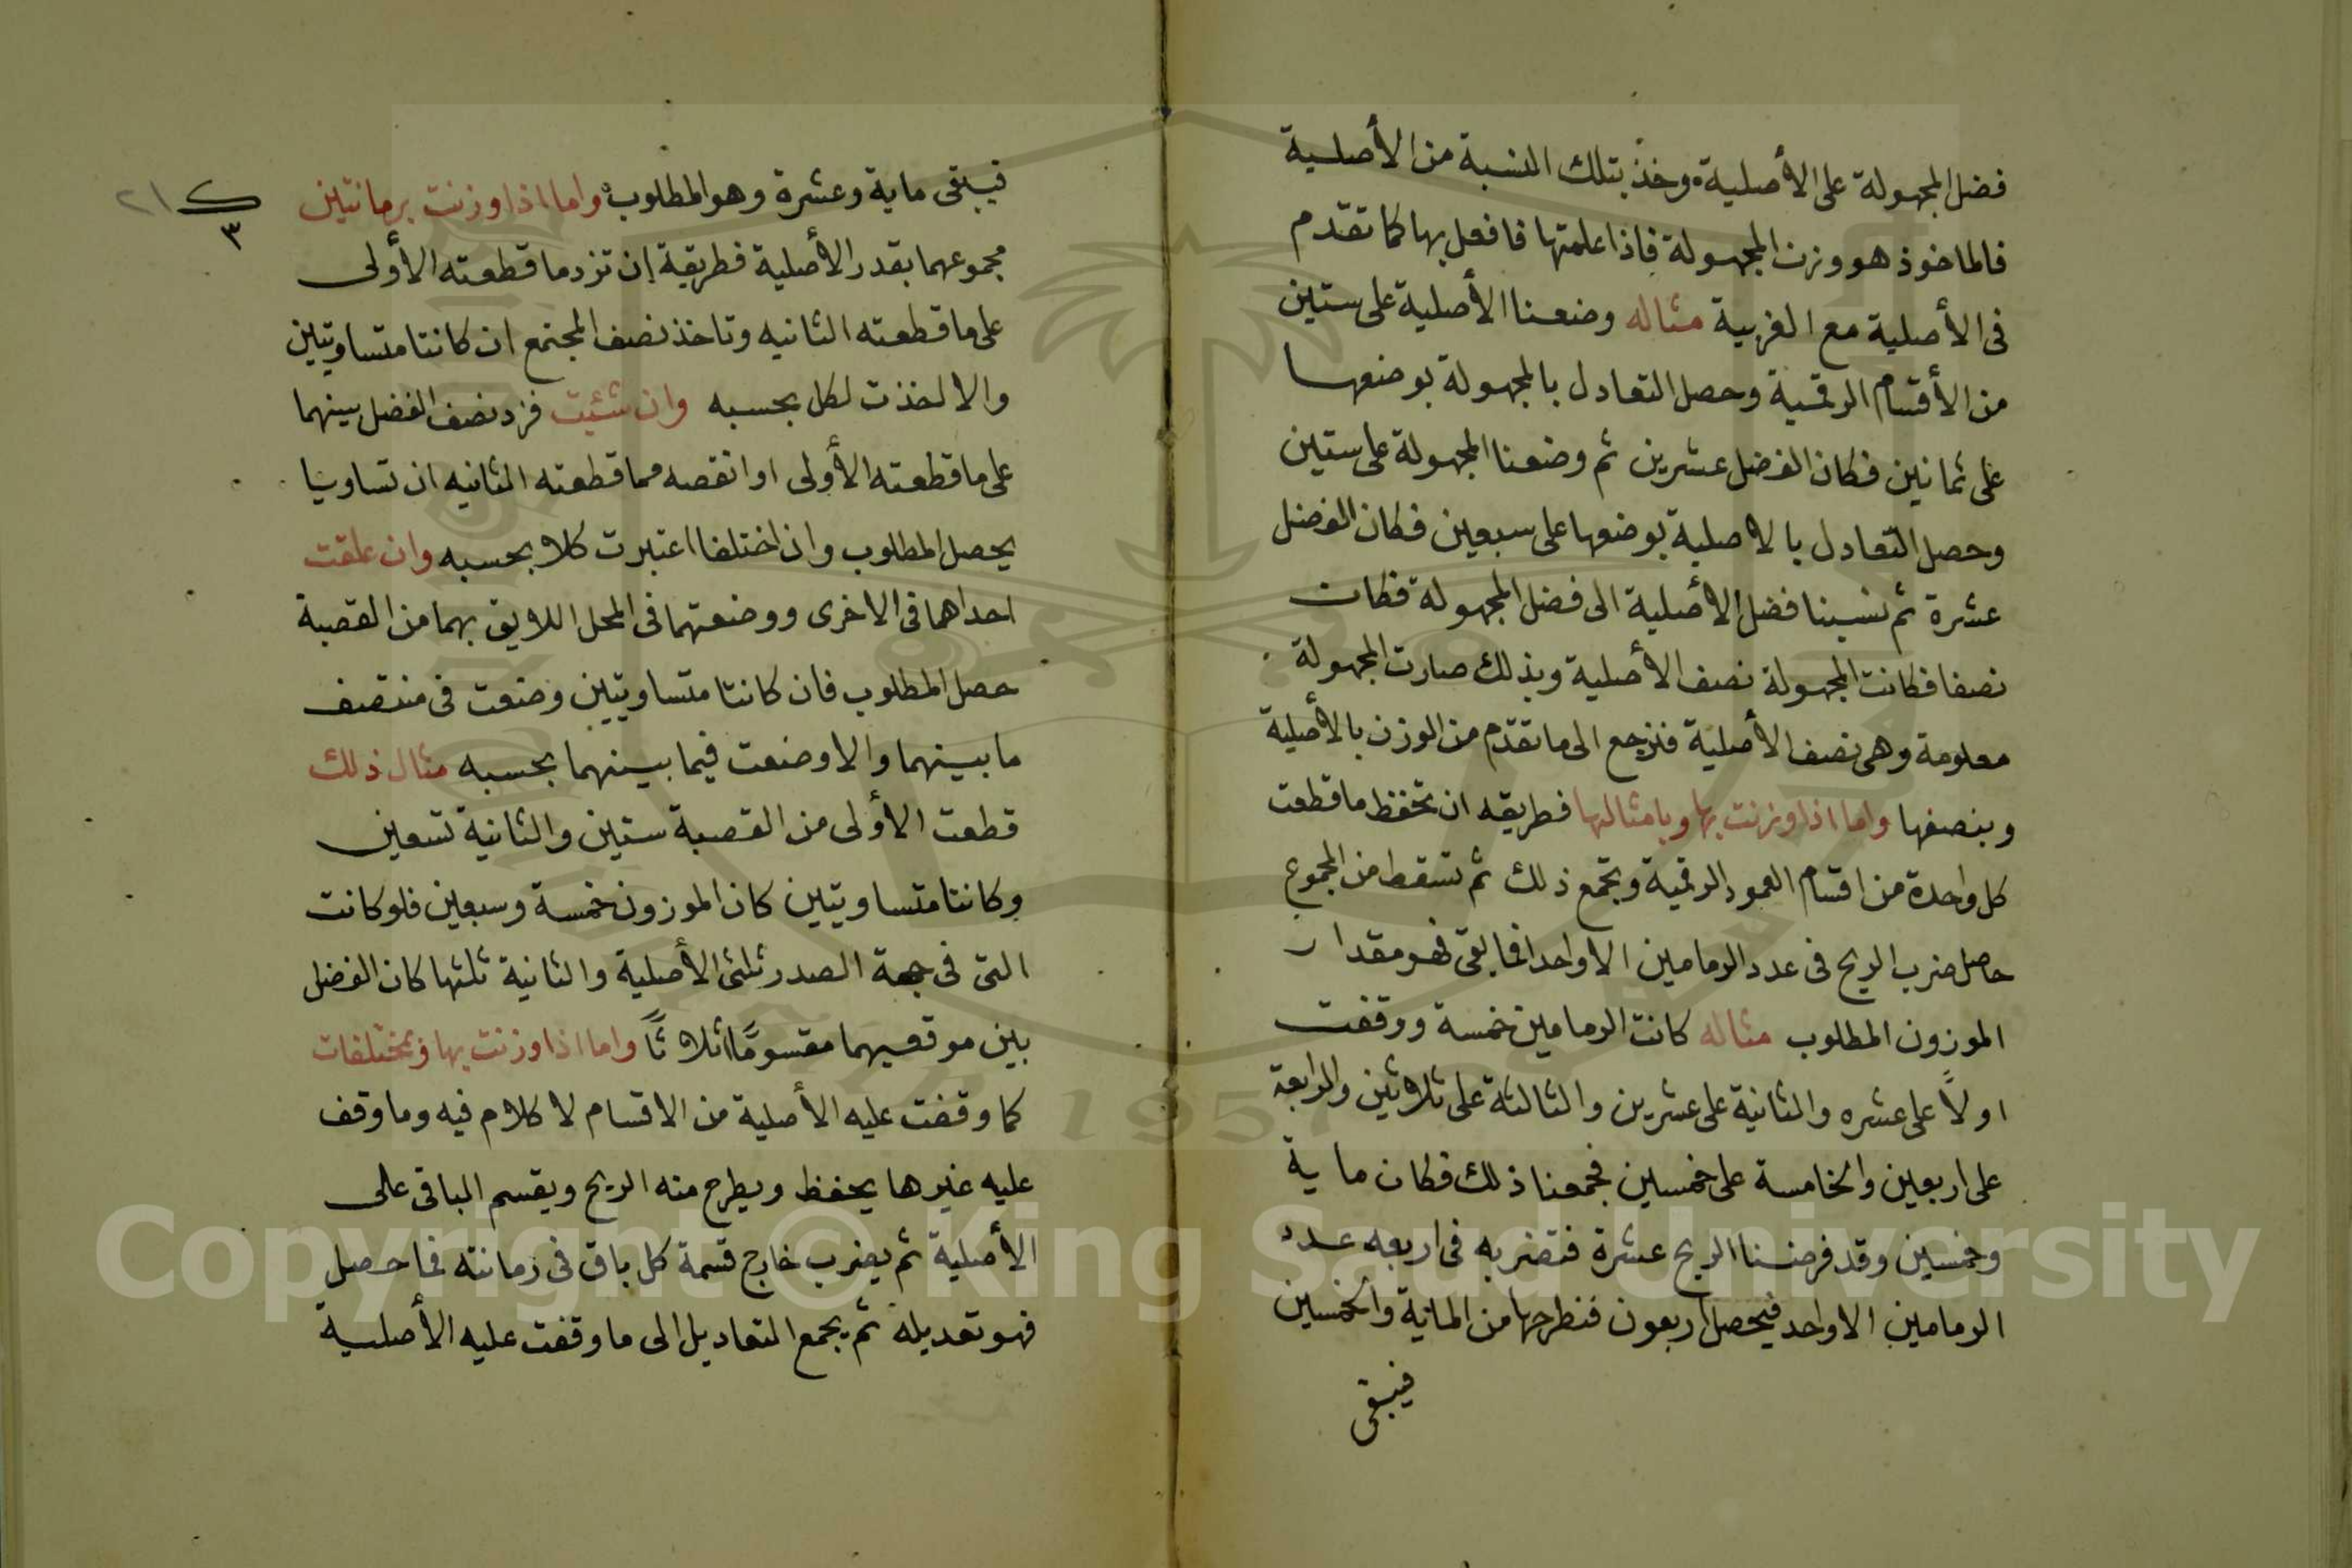 فضل المجهولة على الأصلية وخذ بتلك النسبة من الأصلية
فالماخوذ هو وزن المجهولة فاذا علمتها فافعل بها كما تقدم
فى الأصلية مع الغريبة مثاله وضعنا الأصلية على ستين
من الأقسام الرقمية وحصل التعادل بالمجهولة بوضعها
على ثمانين فكان الفضل عشرين ثم وضعنا المجهولة على ستين
وحصل التعادل بالاصلية بوضعها على سبعين فكان الفضل
عشرة ثم نسبنا فضل الأصلية الى فضل المجهولة فكان
نصفا فكانت المجهولة نصف الأصلية وبذلك صارت المجهولة
معلومة وهى نصف الأصلية فنرجع الى ما تقدم من الوزن بالأصلية
وبنصفها واما اذا وزنت بها وبامثالها فطريقه ان تحفظ ما قطعت
كل واحدة من اقسام العمود الرقمية وتجمع ذلك ثم تسقط من المجموع
حاصل ضرب الريح فى عدد الرمامين الا واحدا فما بقى فهو مقدار
الموزون المطلوب مثاله كانت الرمامين خمسة ووقفت
اولاً على عشره والثانية على عشرين والثالثة على ثلاثين والرابعة
على اربعين والخامسة على خمسين فجمعنا ذلك فكان ماية
وخمسين وقد فرضنا الريح عشرة فتضربه فى اربعه عدد
الرمامين الا واحد فيحصل اربعون فنطرحها من الماية والخمسين
فيبقى
فيبقى ماية وعشرة وهو المطلوب واما اذا وزنت برمانتين
مجموعهما بقدر الأصلية فطريقة ان تزد ما قطعته الأولى
على ما قطعته الثانيه وتاخذ نصف المجتمع ان كانتا متساويتين
والا اخذت لكل بحسبه وان شئت فزد نصف الفضل بينهما
على ما قطعته الأولى او انقصه مما قطعته الثانيه ان تساويتا
يحصل المطلوب وان اختلفا اعتبرت كلا بحسبه وان علقت
احداهما فى الاخرى ووضعتهما فى المحل اللايق بهما من القصبة
حصل المطلوب فان كانتا متساويتين وضعت فى منتصف
ما بينهما والا وضعت فيما بينهما بحسبه مثال ذلك
قطعت الأولى من القصبة ستين والثانية تسعين
وكانتا متساويتين كان الموزون خمسة وسبعين فلو كانت
التى فى جهة الصدر ثلثى الأصلية والثانية ثلثها كان الفضل
بين موقعيهما مقسومًا اثلاثًا واما اذا وزنت بها وبمختلفات
كما وقفت عليه الأصلية من الاقسام لا كلام فيه وما وقف
عليه غيرها يحفظ ويطرح منه الريح ويقسم الباقى على
الأصلية ثم يضرب خارج قسمة كل باق فى رمانته فما حصل
فهو تعديله ثم يجمع التعاديل الى ما وقفت عليه الأصلية
٣
٢١
Copyright © King Saud University
1957